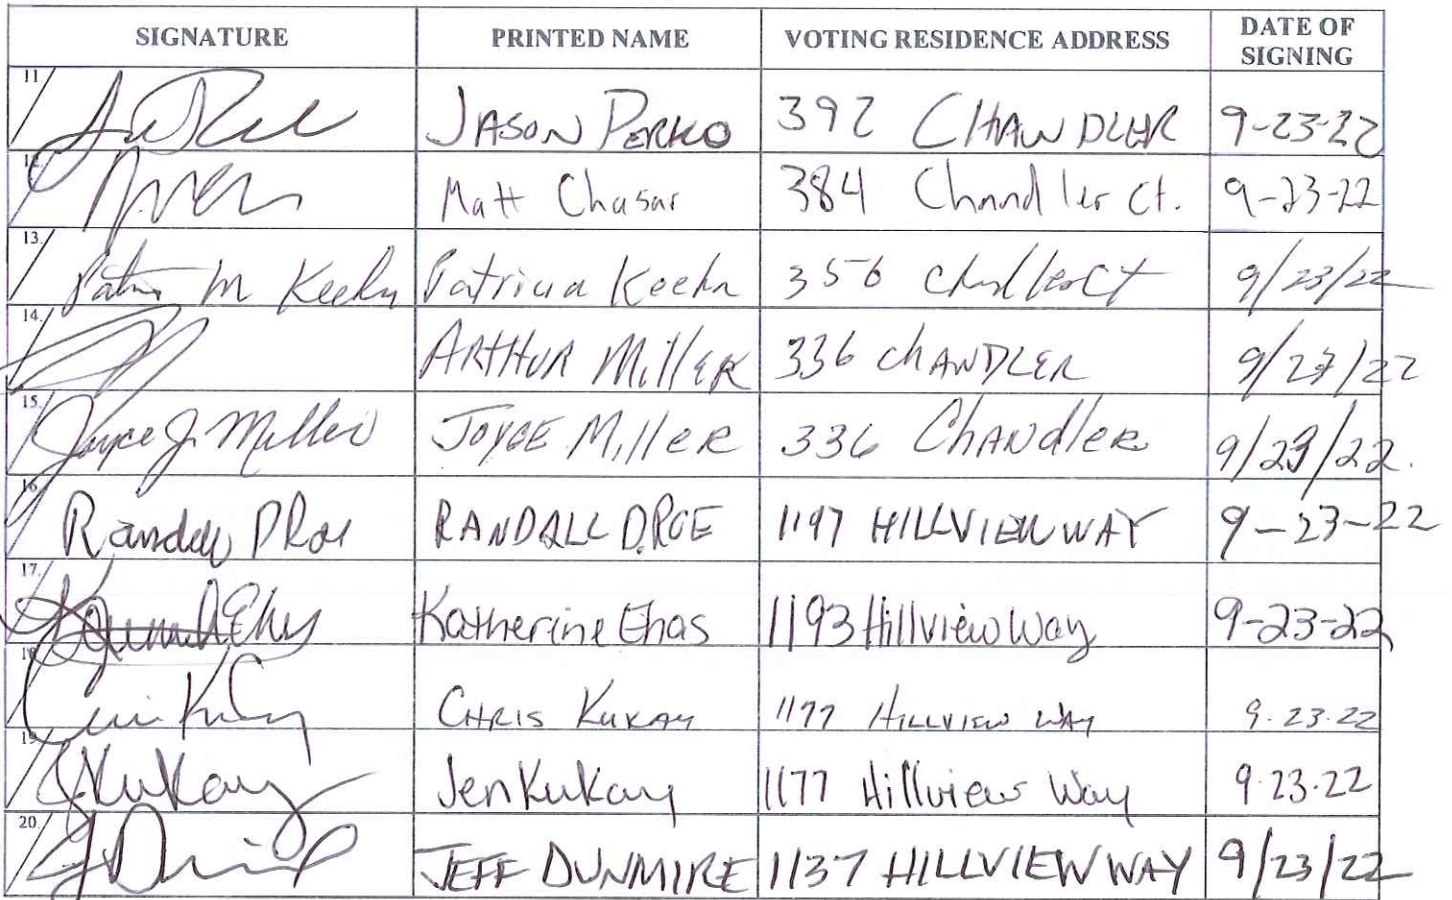 SIGNATURE PRINTED NAME VOTING RESIDENCE ADDRESS DATE OF SIGNING
11 JASON PERKO 392 CHANDLER 9-23-22
12. Matt Chasar 384 Chandler Ct. 9-23-22
13. Patricia M Keehn Patricia Keehn 356 Chandler Ct 9/23/22
14. ARTHUR MillER 336 CHANDLER 9/23/22
15. Joyce J. Miller JOYCE MillER 336 CHANdlER 9/23/22.
16. Randall D Roe RANDALL D. ROE 1197 HILLVIEW WAY 9-23-22
17. Katherine 1193 Hillview Way 9-23-22
18. CHRIS KUKAY 1177 HILLVIEW WAY 9.23.22
19. JKukay Jen Kukay 1177 Hillview Way 9.23.22
20. JEFF DUNMIRE 1137 HILLVIEW WAY 9/23/22